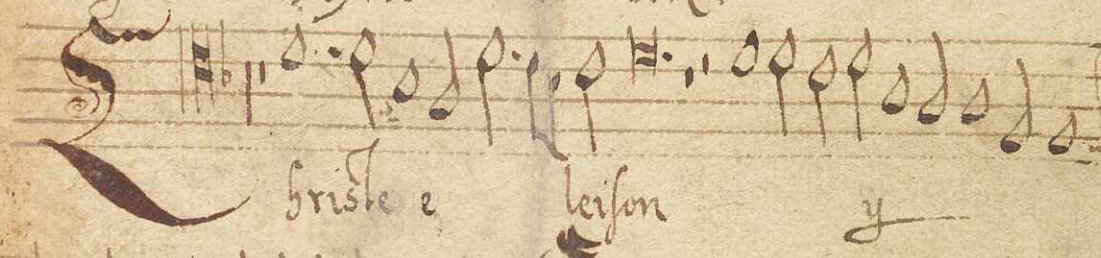 Christe e leison y